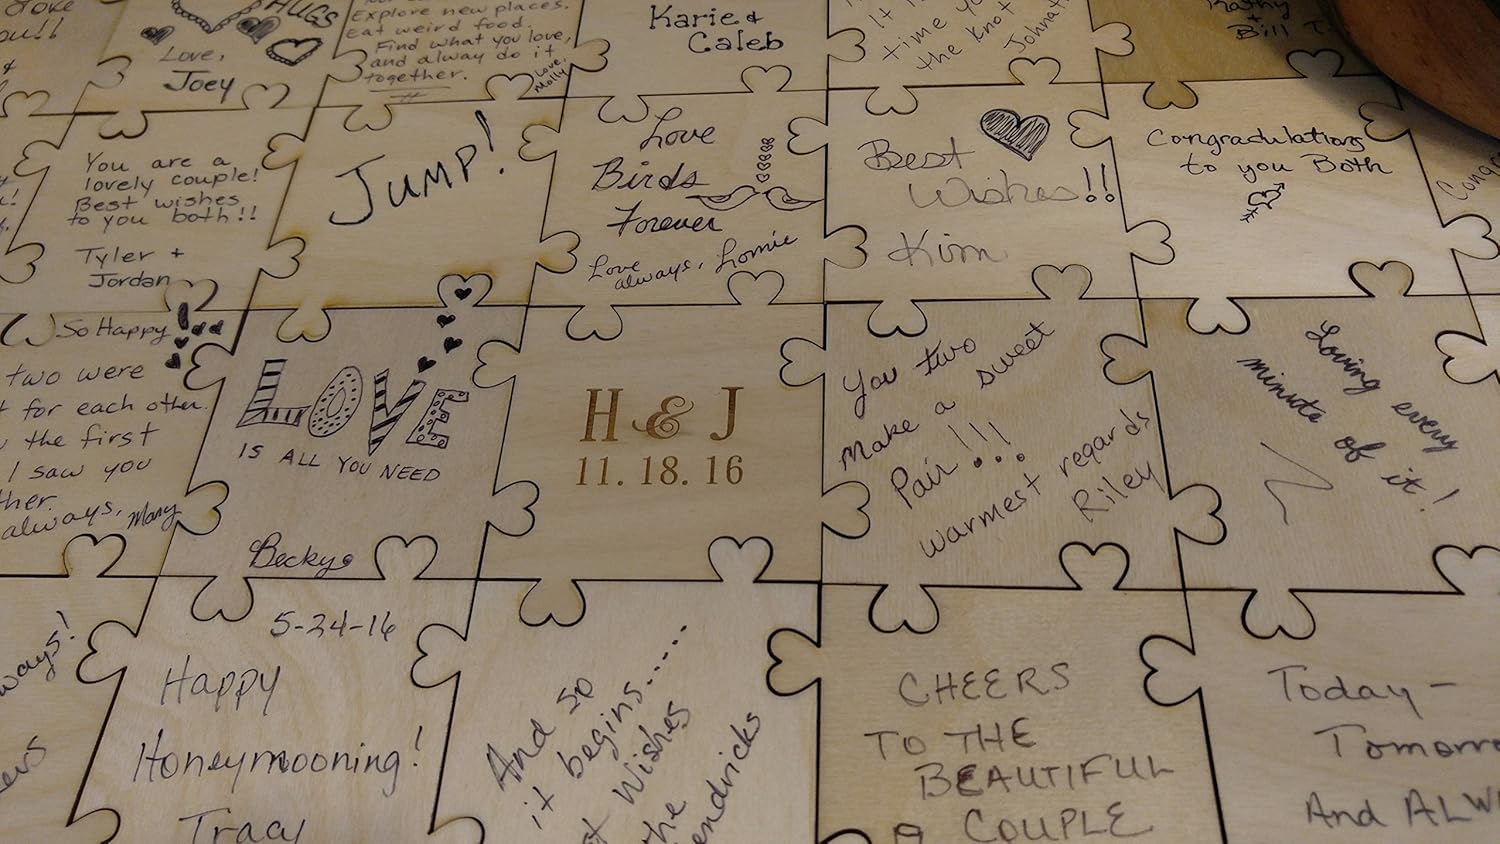 HUGS
Love,
Joey
Explore new places.
eat weird food.
Find what you love,
and alway do it
together.
Love,
Molly
Karie &
Caleb
time
the knot
Kathy
+
Bill T.
You are a
lovely couple!
Best wishes
to you both!!
Tyler +
Jordan
Jump!
Love
Birds
Forever
Love
always, Lornie
Best
Wishes!!
Kim
Congradulations
to you Both
So Happy!
two were
for each other.
the first
I saw you
always, Mary
LOVE
IS ALL YOU NEED
Becky
H & J
11.18.16
You two
make a sweet
Pair!!!
Warmest regards
Riley
Loving every
minute of it!
5-24-16
Happy
Honeymooning!
Tracy
And so
it begins.....
Wishes
the
CHEERS
TO THE
BEAUTIFUL
COUPLE
Today -
And